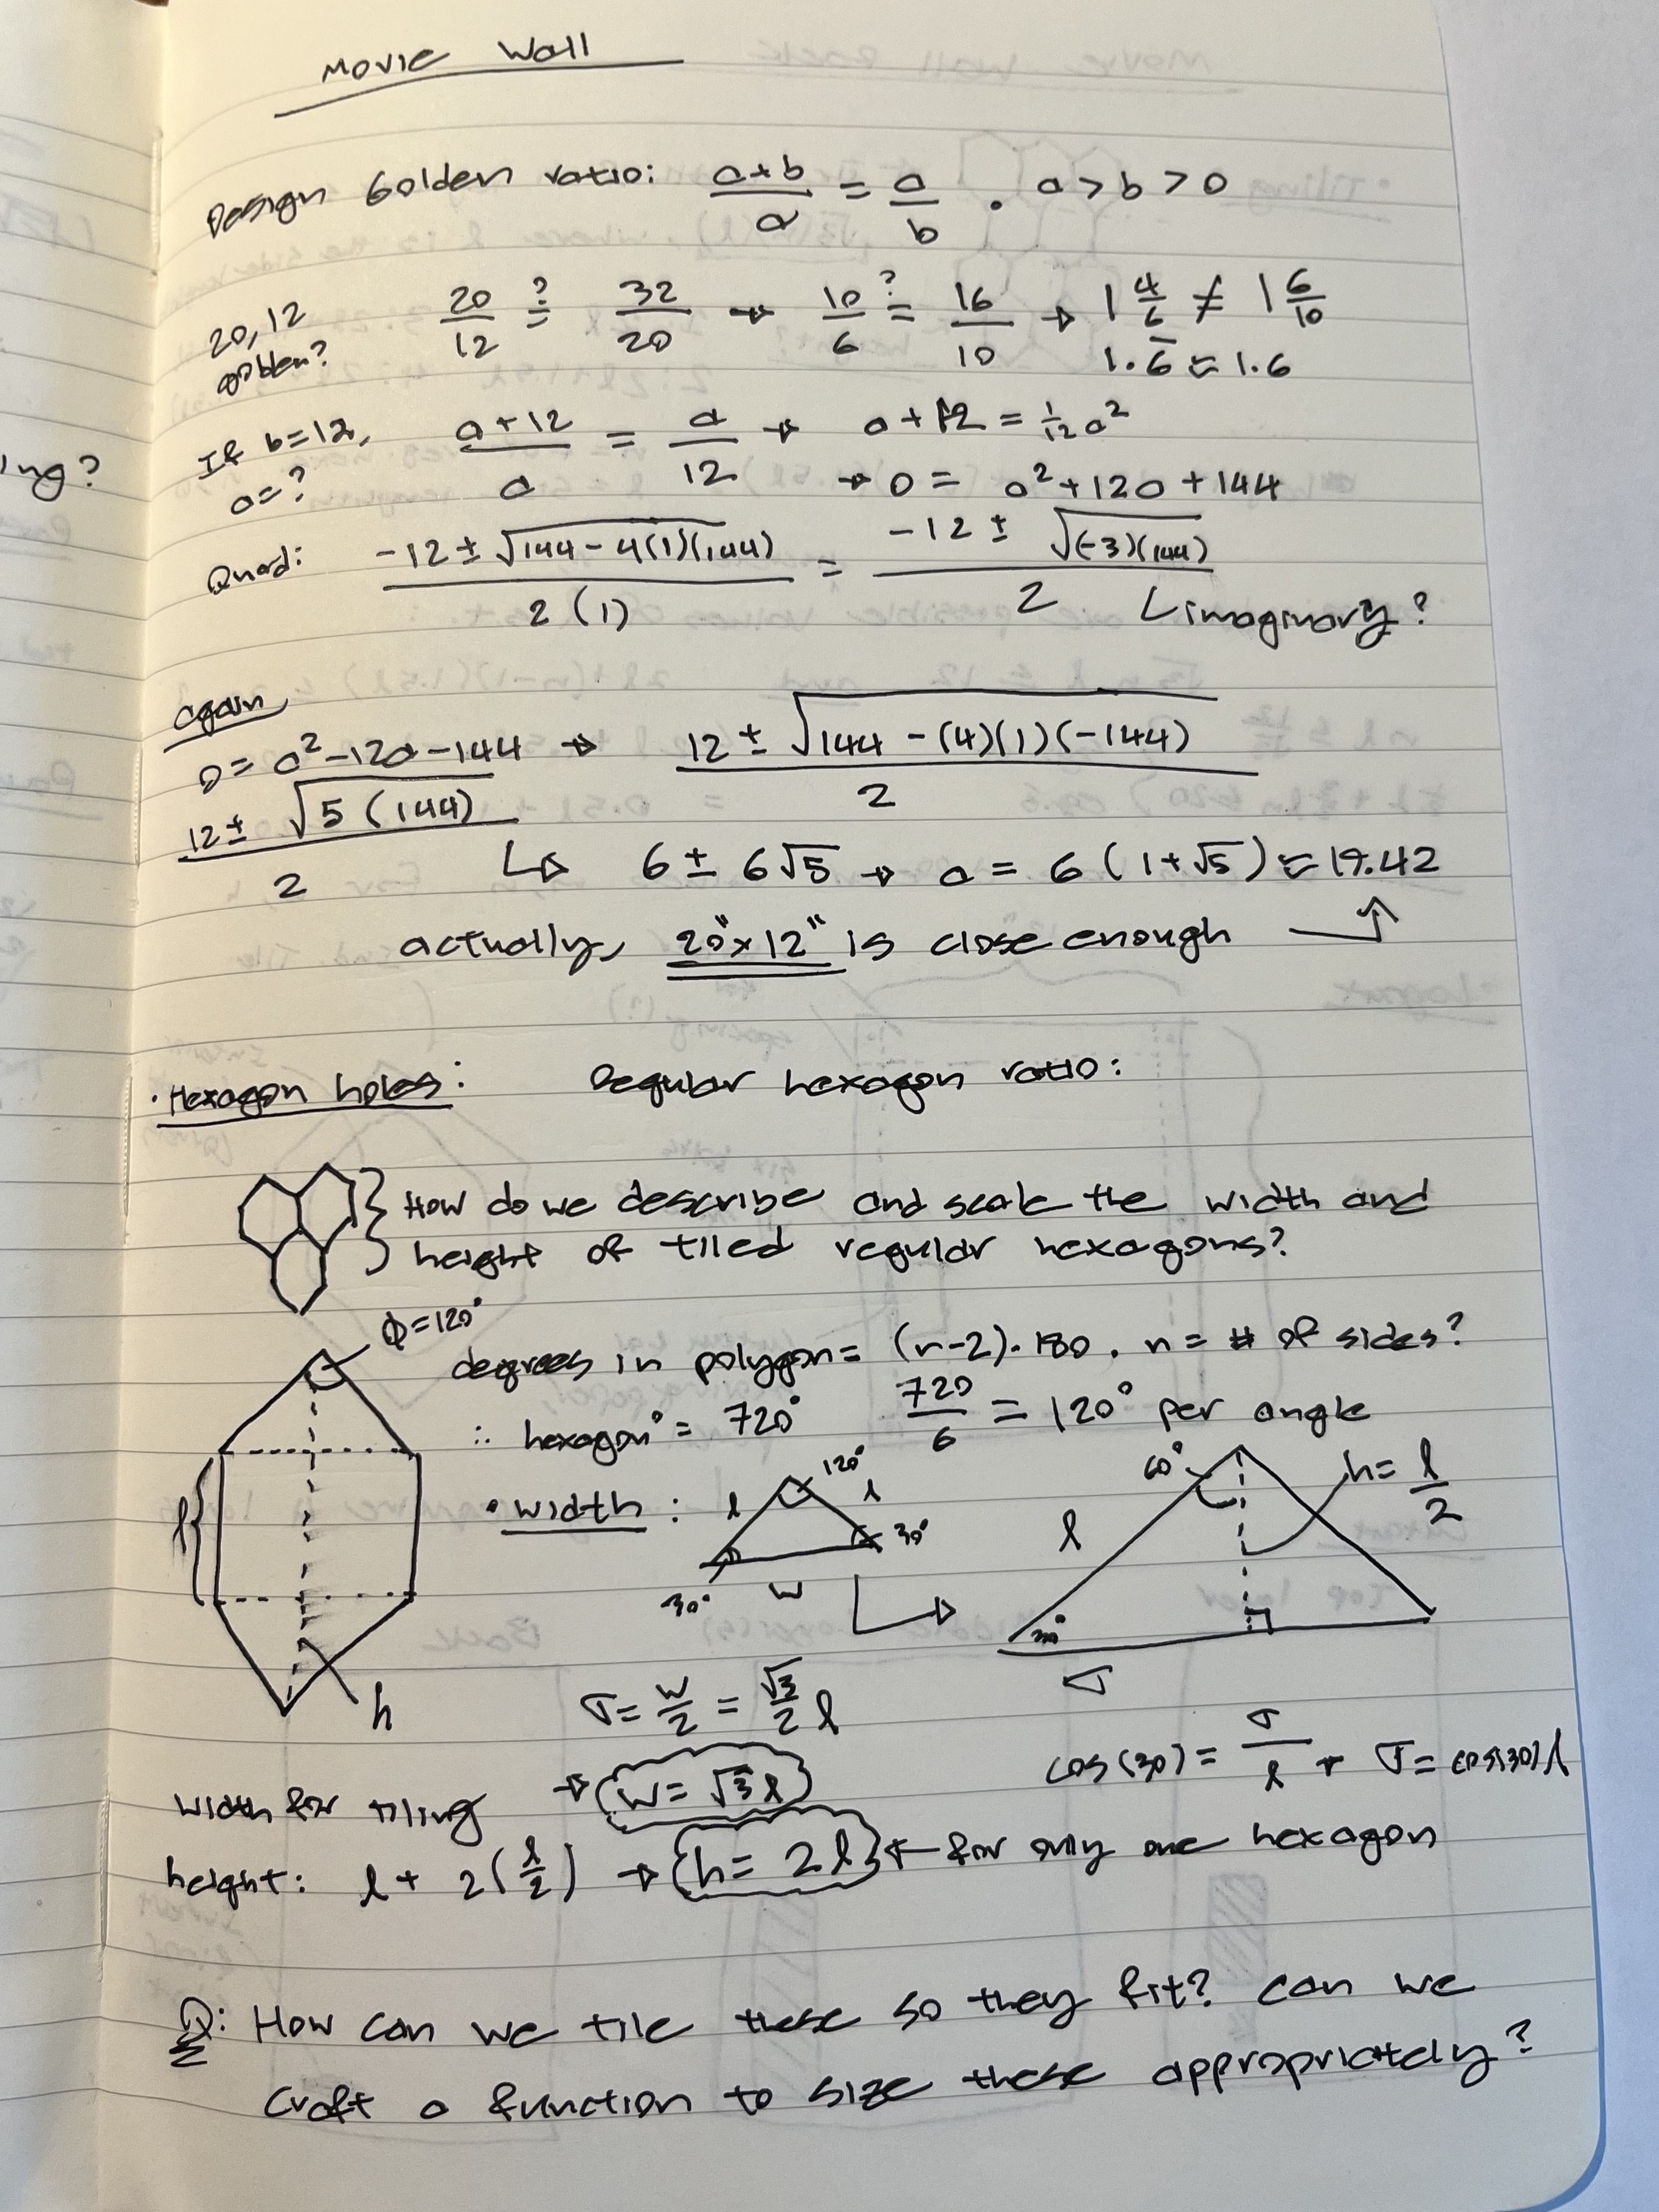 Movie Wall
Design Golden ratio: (a+b)/a = a/b . a > b > 0
20,12 golden? 20/12 ?= 32/20 → 10/6 ?= 16/10 → 1 4/6 ≠ 1 6/10
1.6̅ ≈ 1.6
If b=12, a=? (a+12)/a = a/12 → a+12 = 1/12 a²
→ 0 = a²+12a+144
Quad: (-12 ± √(144-4(1)(144)))/(2(1)) = (-12 ± √((-3)(144)))/2
Limaginary?
again
0 = a²-12a-144 → (12 ± √(144-(4)(1)(-144)))/2
(12 ± √(5(144)))/2
↳ 6 ± 6√5 → a = 6(1+√5) ≈ 19.42
actually, 20"x12" is close enough
ing?
• Hexagon holes: Regular hexagon ratio:
How do we describe and scale the width and
height of tiled regular hexagons?
ϕ=120°
degrees in polygon = (n-2)·180. n = # of sides?
∴ hexagon° = 720° 720/6 = 120° per angle
• width: l 120° l 30° 30° w
60° l h = l/2 30° σ
l
h
σ = w/2 = √3/2 l
cos(30) = σ/l → σ = cos(30)l
width for tiling → w = √3 l
height: l + 2(l/2) → h = 2l ← for only one hexagon
Q: How can we tile these so they fit? can we
craft a function to size these appropriately?